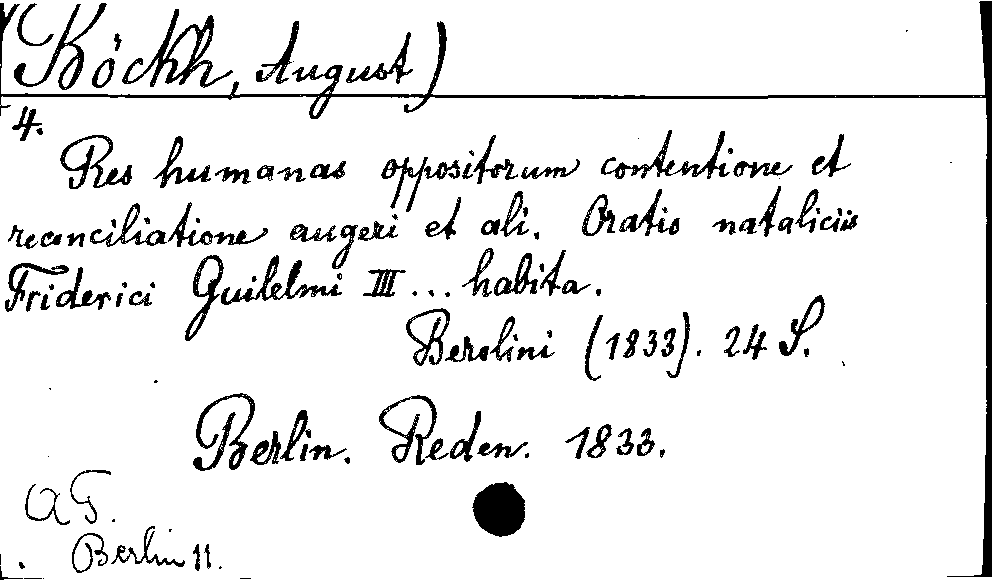 (Böckh, August)
4.
Res humanas oppositorum contentione et
reconciliatione augeri et ali. Oratio nataliciis
Friderici Guilelmi III ... habita.
Berolini (1833). 24 S.
Berlin. Reden. 1833.
AT.
Berlin 11.